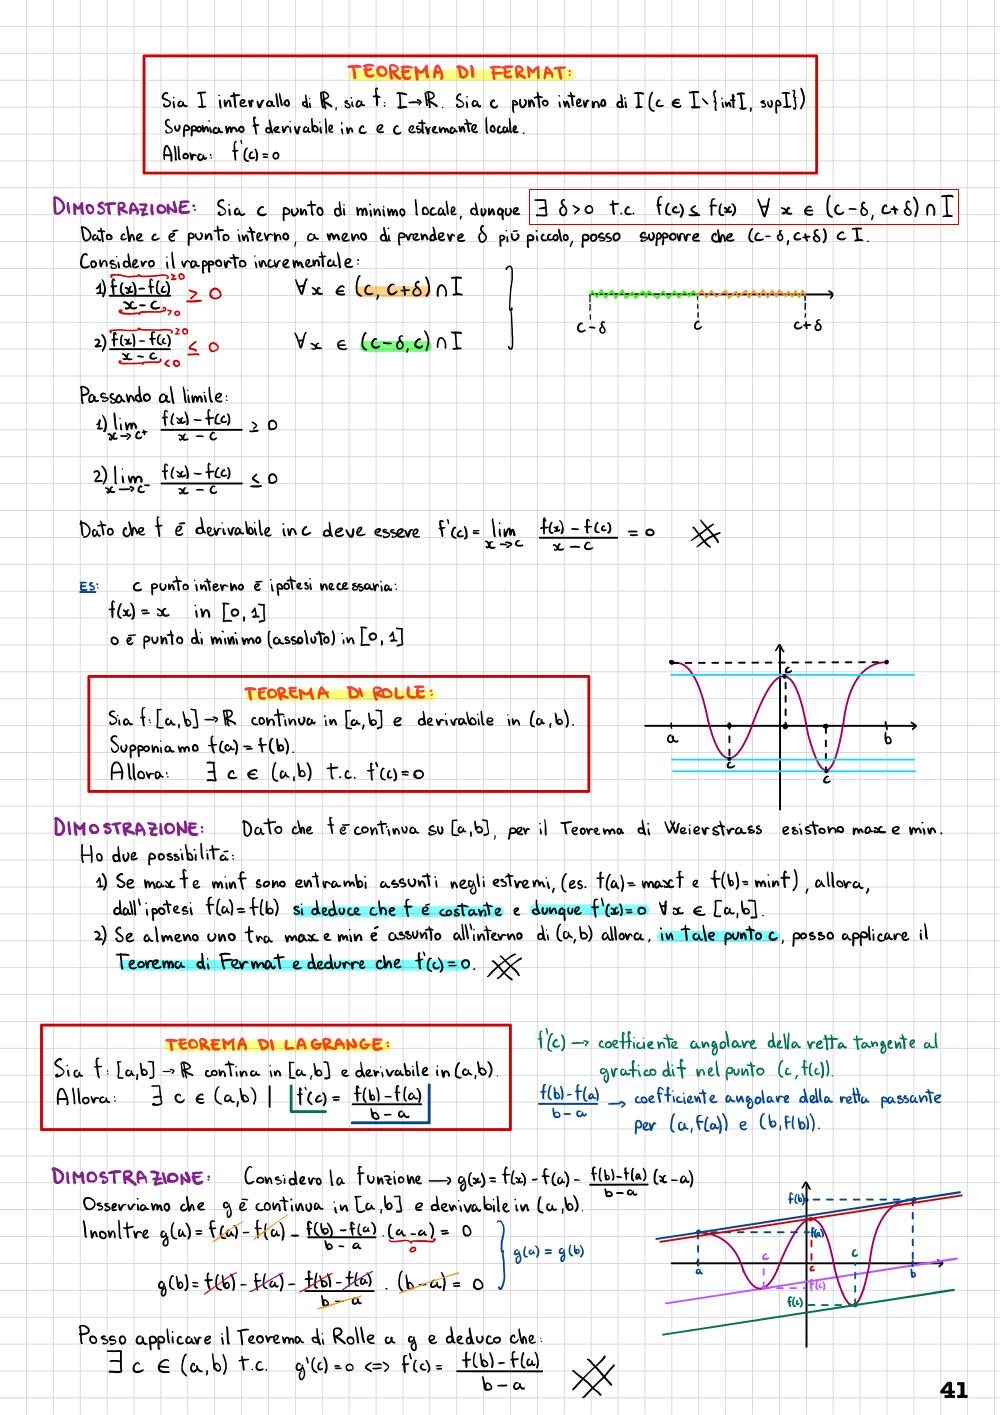 TEOREMA DI FERMAT:
Sia I intervallo di ℝ, sia f: I→ℝ. Sia c punto interno di I (c ∈ I∖{infI, supI})
Supponiamo f derivabile in c e c estremante locale.
Allora: f'(c)=0
DIMOSTRAZIONE: Sia c punto di minimo locale, dunque ∃ δ>0 t.c. f(c) ≤ f(x) ∀ x ∈ (c-δ, c+δ) ∩ I
Dato che c é punto interno, a meno di prendere δ più piccolo, posso supporre che (c-δ, c+δ) ⊂ I.
Considero il rapporto incrementale:
1) f(x)-f(c) ≥0 / x-c >0 ≥ 0 ∀x ∈ (c, c+δ) ∩ I
2) f(x)-f(c) ≥0 / x-c <0 ≤ 0 ∀x ∈ (c-δ, c) ∩ I
c-δ c c+δ
Passando al limite:
1) lim x→c⁺ f(x)-f(c) / x-c ≥ 0
2) lim x→c⁻ f(x)-f(c) / x-c ≤ 0
Dato che f é derivabile in c deve essere f'(c) = lim x→c f(x)-f(c) / x-c = 0
ES: c punto interno é ipotesi necessaria:
f(x) = x in [0,1]
0 é punto di minimo (assoluto) in [0,1]
TEOREMA DI ROLLE:
Sia f: [a,b] → ℝ continua in [a,b] e derivabile in (a,b).
Supponiamo f(a) = f(b).
Allora: ∃ c ∈ (a,b) t.c. f'(c)=0
c
a b
c
c
DIMOSTRAZIONE: Dato che f é continua su [a,b], per il Teorema di Weierstrass esistono max e min.
Ho due possibilità:
1) Se maxf e minf sono entrambi assunti negli estremi, (es. f(a)=maxf e f(b)=minf), allora,
dall'ipotesi f(a)=f(b) si deduce che f é costante e dunque f'(x)=0 ∀x ∈ [a,b].
2) Se almeno uno tra max e min é assunto all'interno di (a,b) allora, in tale punto c, posso applicare il
Teorema di Fermat e dedurre che f'(c)=0.
TEOREMA DI LAGRANGE:
Sia f: [a,b] → ℝ contina in [a,b] e derivabile in (a,b).
Allora: ∃ c ∈ (a,b) | f'(c) = f(b)-f(a) / b-a
f'(c) → coefficiente angolare della retta tangente al
grafico di f nel punto (c, f(c)).
f(b)-f(a) / b-a → coefficiente angolare della retta passante
per (a, f(a)) e (b, f(b)).
DIMOSTRAZIONE: Considero la funzione → g(x) = f(x) - f(a) - f(b)-f(a) / b-a (x-a)
Osserviamo che g é continua in [a,b] e derivabile in (a,b).
Inonltre g(a) = f(a) - f(a) - f(b)-f(a) / b-a · (a-a) = 0
0
g(a) = g(b)
g(b) = f(b) - f(a) - f(b)-f(a) / b-a · (b-a) = 0
Posso applicare il Teorema di Rolle a g e deduco che:
∃ c ∈ (a,b) t.c. g'(c)=0 <=> f'(c) = f(b)-f(a) / b-a
f(b)
f(a)
c c
a c b
f(c)
f(c)
41